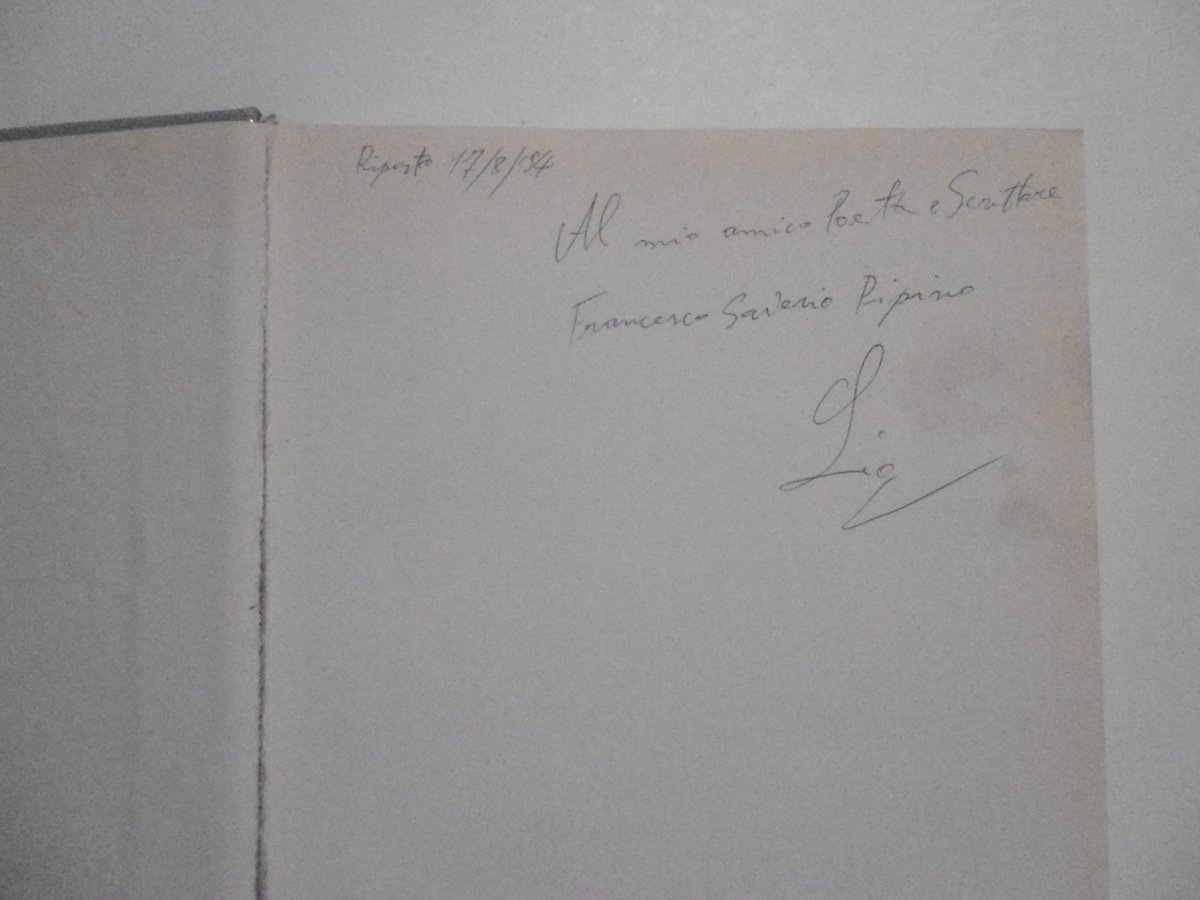 Riposto 17/8/'94
Al mio amico Poeta e Scrittore
Francesco Saverio Pipino
Lio